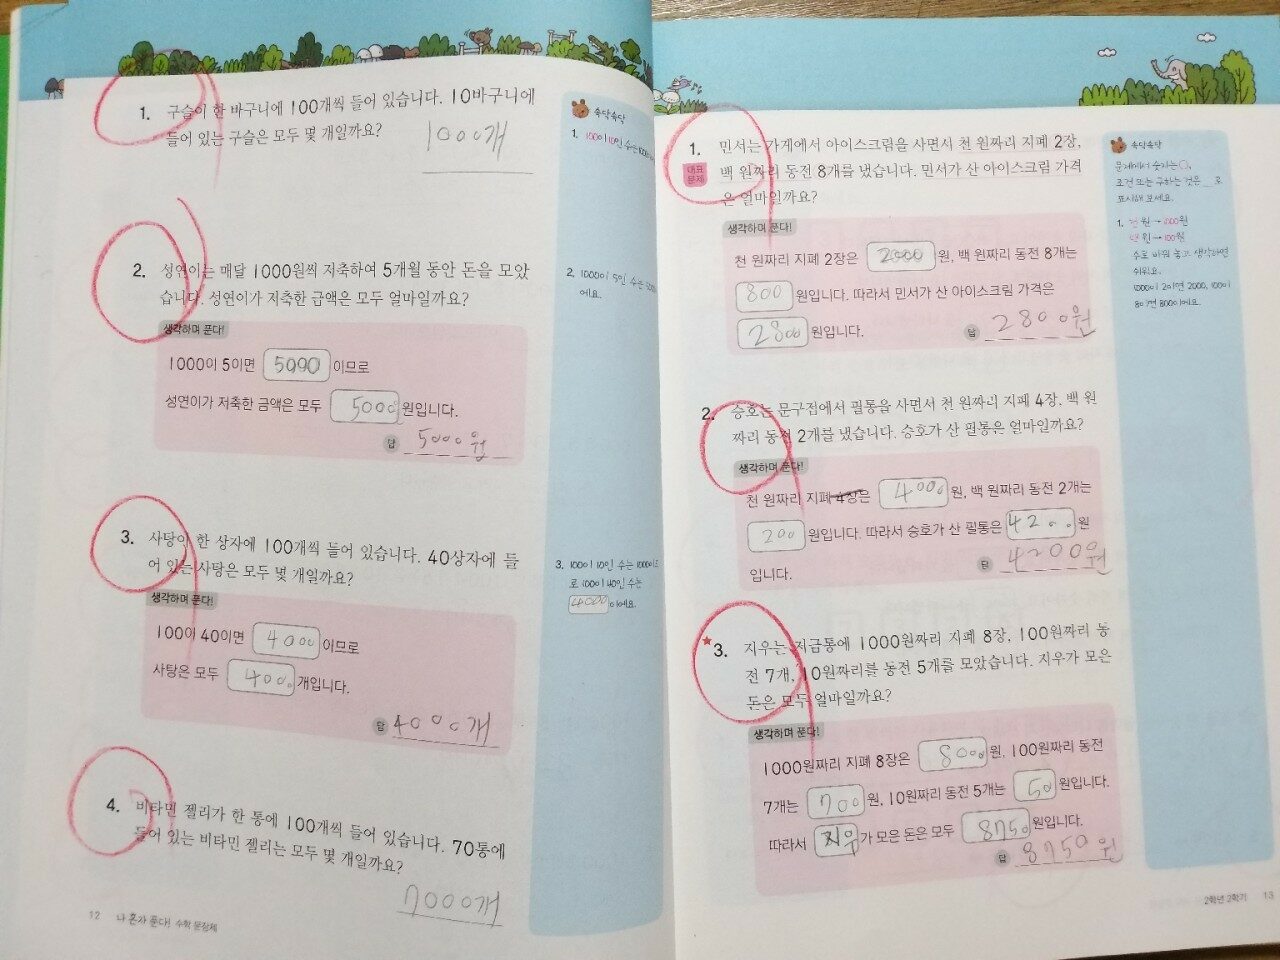 1. 구슬이 한 바구니에 100개씩 들어 있습니다. 10바구니에
들어 있는 구슬은 모두 몇 개일까요?
1000개
2. 성연이는 매달 1000원씩 저축하여 5개월 동안 돈을 모았
습니다. 성연이가 저축한 금액은 모두 얼마일까요?
생각하며 푼다!
1000이 5이면 5000 이므로
성연이가 저축한 금액은 모두 5000 원입니다.
답 5000원
3. 사탕이 한 상자에 100개씩 들어 있습니다. 40상자에 들
어 있는 사탕은 모두 몇 개일까요?
생각하며 푼다!
100이 40이면 4000 이므로
사탕은 모두 4000 개입니다.
답 4000개
4. 비타민 젤리가 한 통에 100개씩 들어 있습니다. 70통에
들어 있는 비타민 젤리는 모두 몇 개일까요?
7000개
12 나 혼자 푼다! 수학 문장제
속닥속닥
1. 100이 10인 수는
2. 1000이 5인 수는
에요.
3. 100이 10인 수는 1000이므
로 100이 40인 수는
4000 이에요.
1. 민서는 가게에서 아이스크림을 사면서 천 원짜리 지폐 2장,
대표 문제
백 원짜리 동전 8개를 냈습니다. 민서가 산 아이스크림 가격
은 얼마일까요?
생각하며 푼다!
천 원짜리 지폐 2장은 2000 원, 백 원짜리 동전 8개는
800 원입니다. 따라서 민서가 산 아이스크림 가격은
2800 원입니다.
답 2800원
2. 승호는 문구점에서 필통을 사면서 천 원짜리 지폐 4장, 백 원
짜리 동전 2개를 냈습니다. 승호가 산 필통은 얼마일까요?
생각하며 푼다!
천 원짜리 지폐 4장은 4000 원, 백 원짜리 동전 2개는
200 원입니다. 따라서 승호가 산 필통은 4200 원
입니다.
답 4200원
3. 지우는 저금통에 1000원짜리 지폐 8장, 100원짜리 동
전 7개, 10원짜리를 동전 5개를 모았습니다. 지우가 모은
돈은 모두 얼마일까요?
생각하며 푼다!
1000원짜리 지폐 8장은 8000 원, 100원짜리 동전
7개는 700 원, 10원짜리 동전 5개는 50 원입니다.
따라서 지우 가 모은 돈은 모두 8750 원입니다.
답 8750원
속닥속닥
문제에서 숫자는 ○,
조건 또는 구하는 것은 __로
표시해 보세요.
1. 천 원→1000원
백 원→100원
수로 바꿔 놓고 생각하면
쉬워요.
1000이 2이면 2000, 100이
8이면 800이에요.
2학년 2학기 13